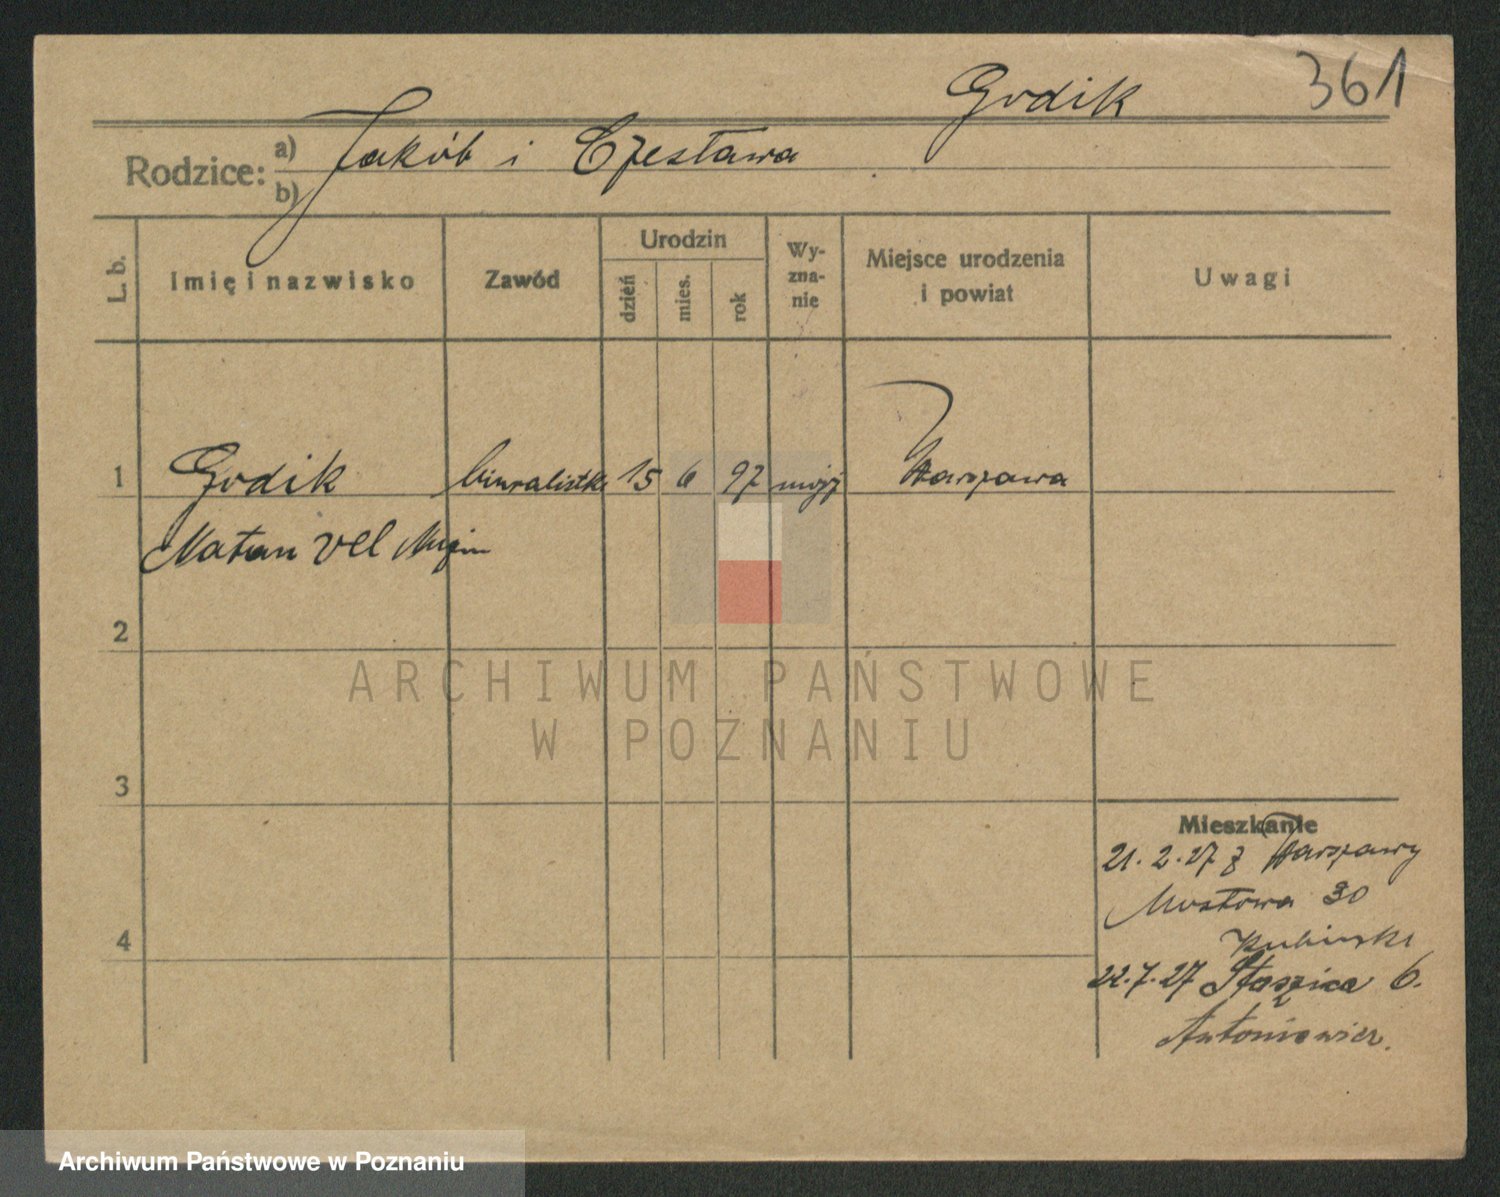 Godik 361
Rodzice: a) Jakób i Czesława
b)
L. b.
Imię i nazwisko
Zawód
Urodzin
dzień
mies.
rok
Wy-
zna-
nie
Miejsce urodzenia
i powiat
Uwagi
1 Godik biuralistka 15 6 97 mojż Warszawa
Natan vel
2
3
4
Mieszkanie
21.2.27 z Warszawy
Mostowa 30
Rubinski
22.7.27 Staszica 6.
Antoniewicz.
ARCHIWUM PAŃSTWOWE
W POZNANIU
Archiwum Państwowe w Poznaniu